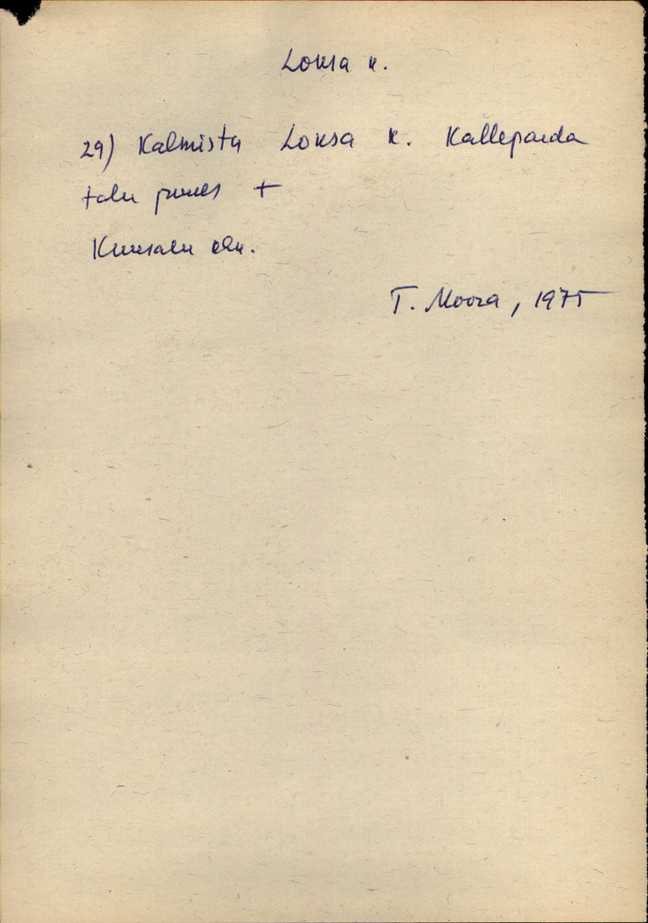 Loksa k.
29) Kalmistu Loksa k. Kalleparda
talu juures +
Kuusalu khn.
T. Moora, 1975